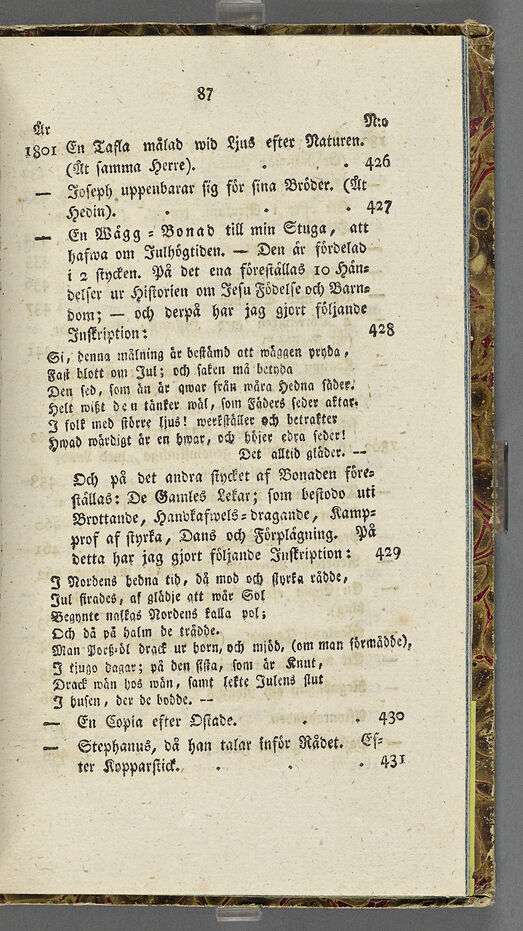 87
År N:o
1801 En Tafla målad wid Ljus efter Naturen.
(Åt samma Herre). . . 426
— Joseph uppenbarar sig för sina Bröder. (Åt
Hedin). . . . 427
— En Wägg-Bonad till min Stuga, att
hafwa om Julhögtiden. — Den är fördelad
i 2 stycken. På det ena föreställas 10 Hän-
delser ur Historien om Jesu Födelse och Barn-
dom; — och derpå har jag gjort följande
Inskription: 428
Si, denna målning är bestämd att wäggen pryda,
Fast blott om Jul; och saken må betyda
Den sed, som än är qwar från wåra Hedna fäder.
Helt wißt den tänker wäl, som Fäders seder aktar.
I folk med större ljus! werkställer och betrakter
Hwad wärdigt är en hwar, och höjer edra seder!
Det alltid gläder. —
Och på det andra stycket af Bonaden före-
ställas: De Gamles Lekar; som bestodo uti
Brottande, Handkafwels-dragande, Kamp-
prof af styrka, Dans och Förplägning. På
detta har jag gjort följande Inskription: 429
I Nordens hedna tid, då mod och styrka rådde,
Jul firades, af glädje att wår Sol
Begynte nalkas Nordens kalla pol;
Och då på halm de trådde.
Man Porß-öl drack ur horn, och mjöd, (om man förmådde),
I tjugo dagar; på den sista, som är Knut,
Drack wän hos wän, samt lekte Julens slut
I husen, der de bodde. —
— En Copia efter Ostade. . . 430
— Stephanus, då han talar inför Rådet. Ef-
ter Kopparstick. . . . 431